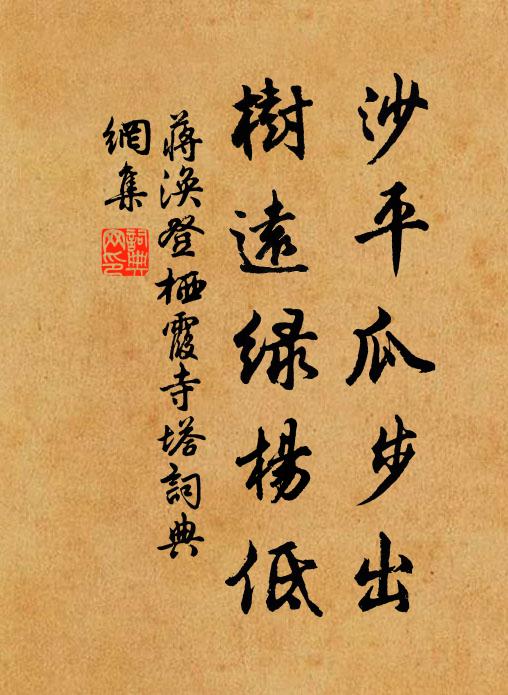 沙平瓜步出
樹遠緑楊低
蔣渙登栖霞寺塔詞典
網集
詞典
网印